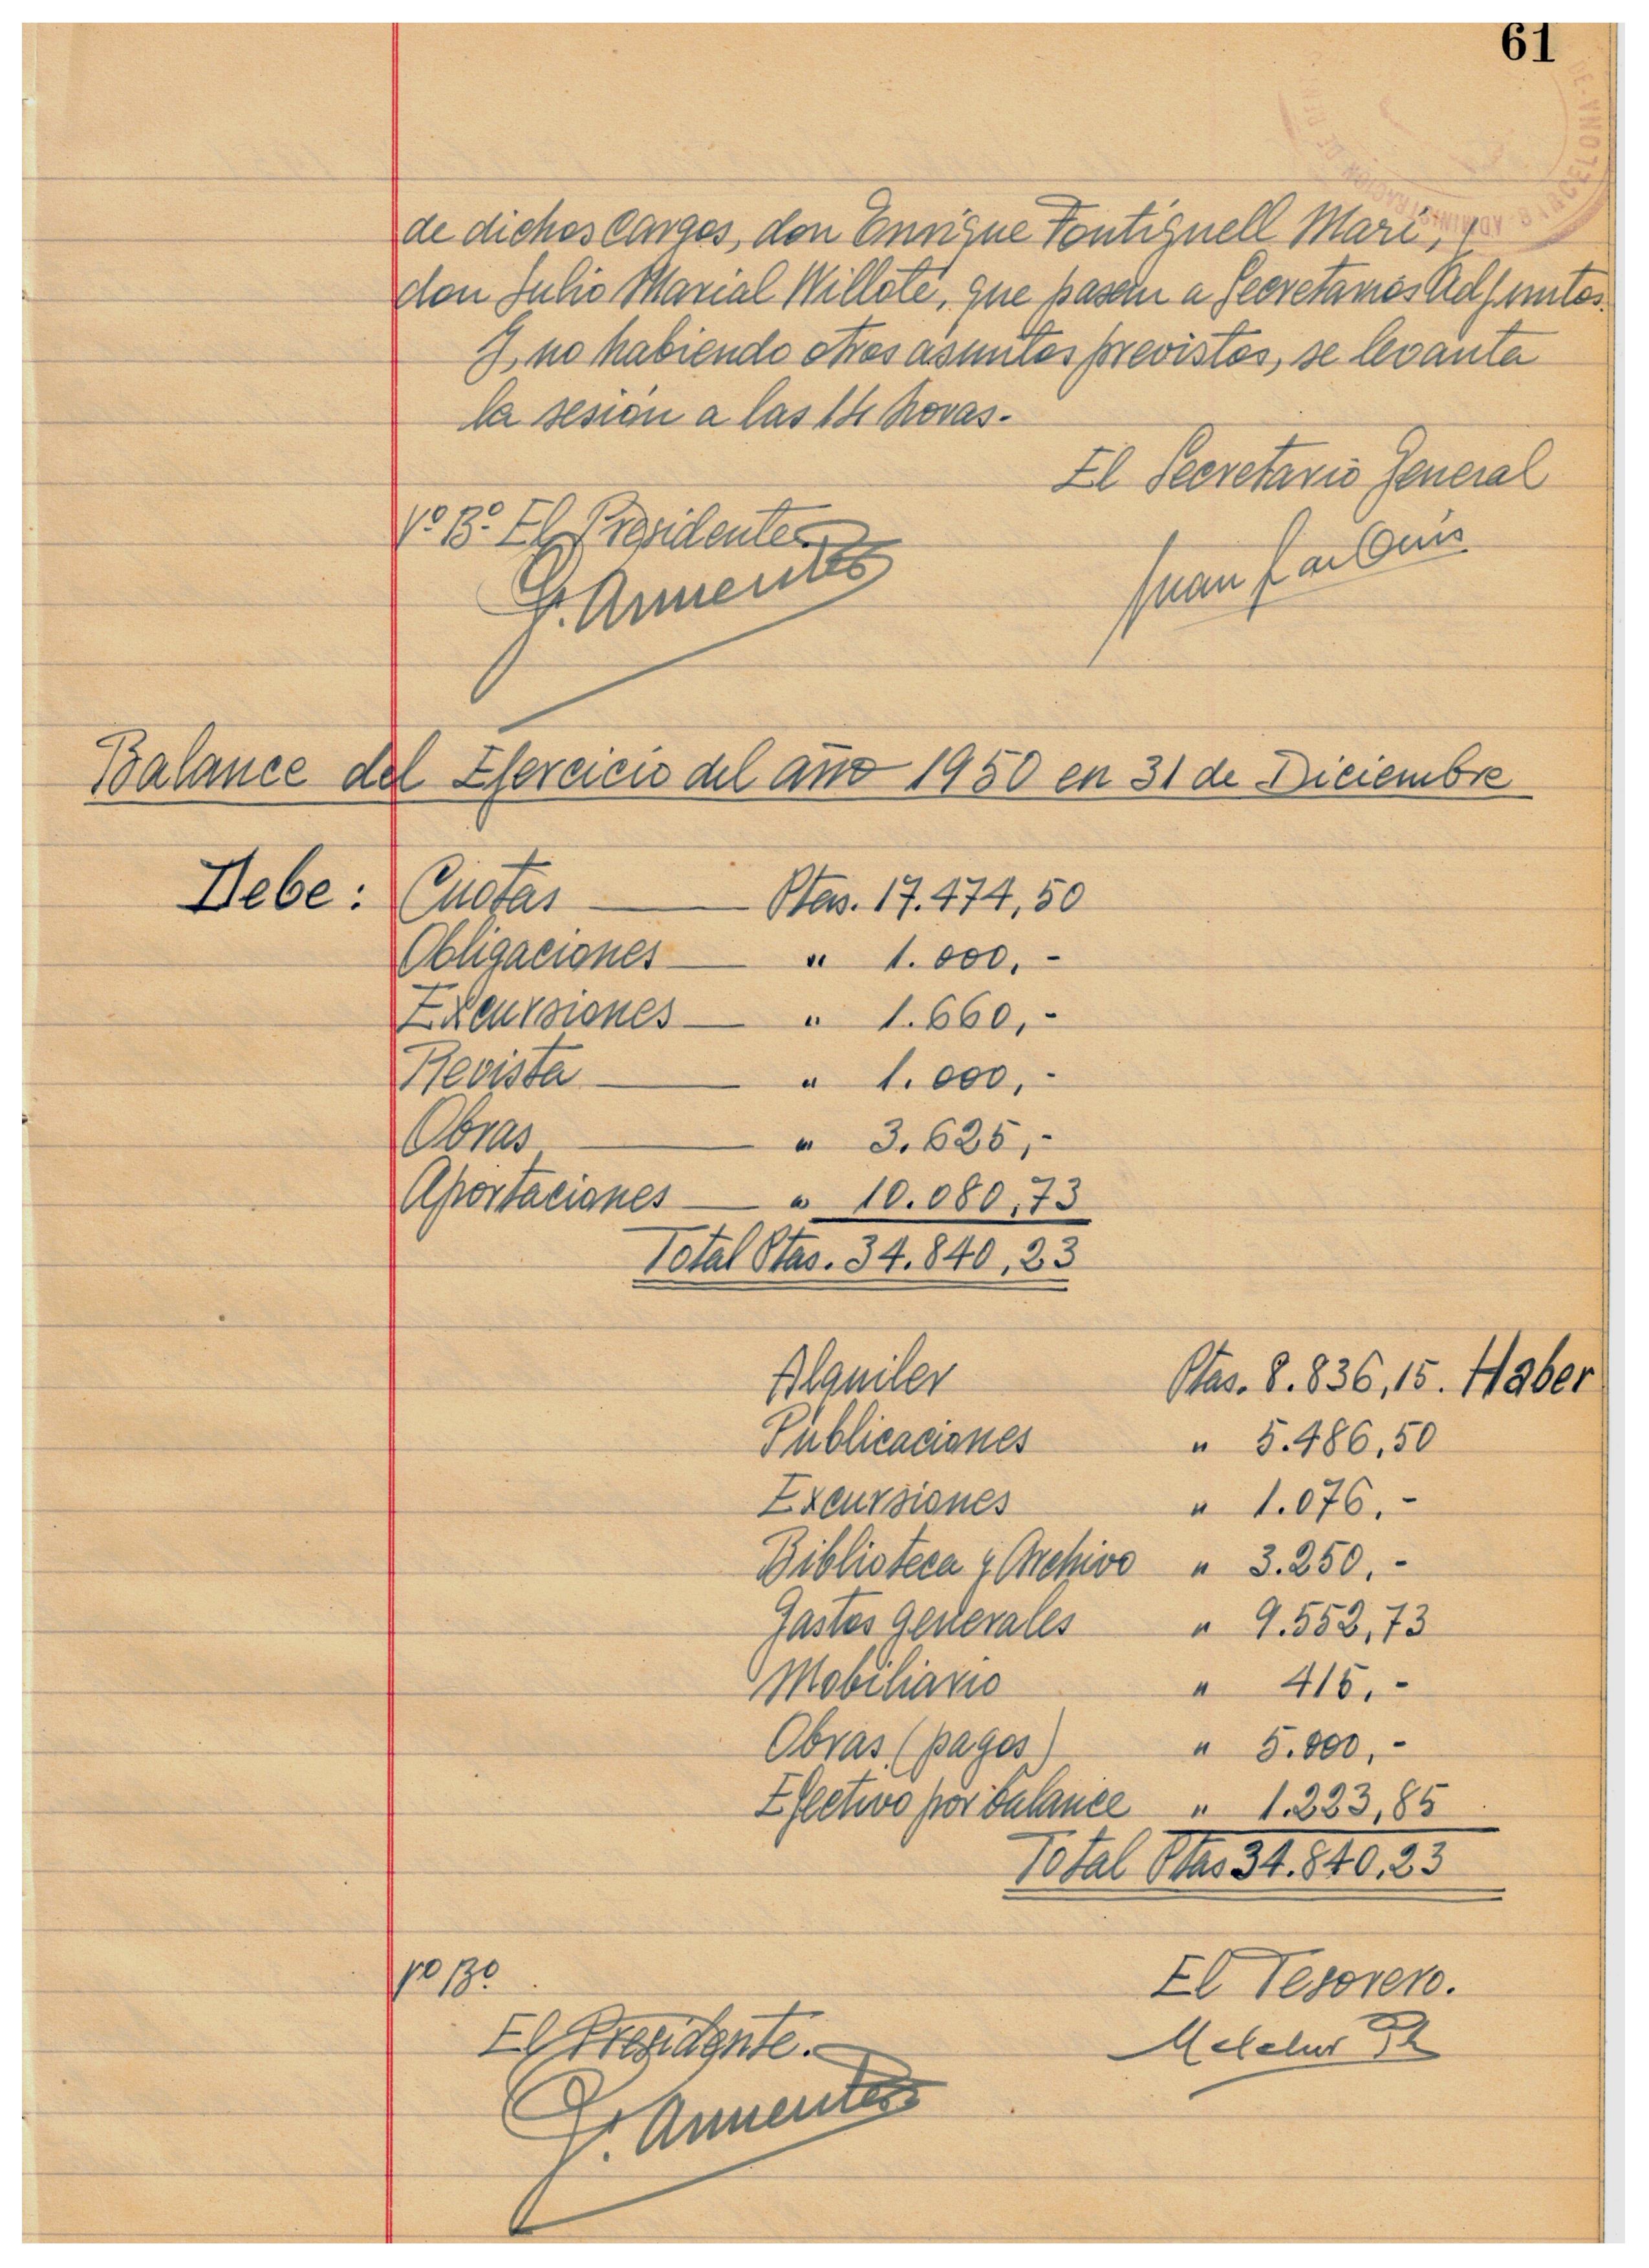 61
de dichos cargos, don Enrique Fontignell Mari, y
don Julio Marial Willoté, que pasan a Secretarios Adjuntos.
Y, no habiendo otros asuntos previstos, se levanta
la sesión a las 14 horas.-
El Secretario General
Vº Bº El Presidente
J. Armenteras
Juan
Balance del Ejercicio del año 1950 en 31 de Diciembre
Debe: Cuotas — Ptas. 17.474,50
Obligaciones — " 1.000,-
Excursiones — " 1.660,-
Revista — " 1.000,-
Obras — " 3.625,-
Aportaciones — " 10.080,73
Total Ptas. 34.840,23
Alquiler Ptas. 8.836,15. Haber
Publicaciones " 5.486,50
Excursiones " 1.076,-
Biblioteca y Archivo " 3.250,-
Gastos generales " 9.552,73
Mobiliario " 415,-
Obras (pagos) " 5.000,-
Efectivo por balance " 1.223,85
Total Ptas 34.840,23
Vº Bº
El Tesorero.
El Presidente.
Melchor
J. Armenteras